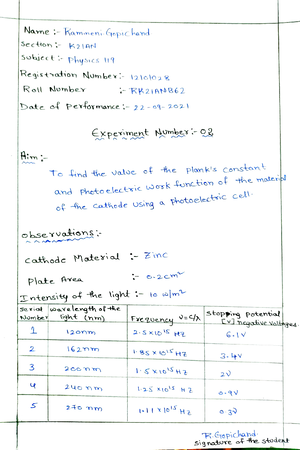 Name :- Rammeni Gopichand
Section :- K21AN
Subject :- Physics 119
Registration Number :- 12101028
Roll Number :- RK21ANB62
Date of Performance :- 22-09-2021
Experiment Number :- 02
Aim :-
To find the value of the plank's constant
and photoelectric work function of the material
of the cathode using a photoelectric cell.
observations :-
Cathode Material :- Zinc
Plate Area :- 0.2cm²
Intensity of the light :- 10 w/m²
Serial Number | wavelength of the light (nm) | Frequency ν=c/λ | Stopping potential [v] negative voltages
1 | 120nm | 2.5×10¹⁵ Hz | 6.1V
2 | 162nm | 1.85×10¹⁵ Hz | 3.4V
3 | 200nm | 1.5×10¹⁵ Hz | 2V
4 | 240nm | 1.25×10¹⁵ Hz | 0.9V
5 | 270nm | 1.11×10¹⁵ Hz | 0.3V
R.Gopichand
signature of the student